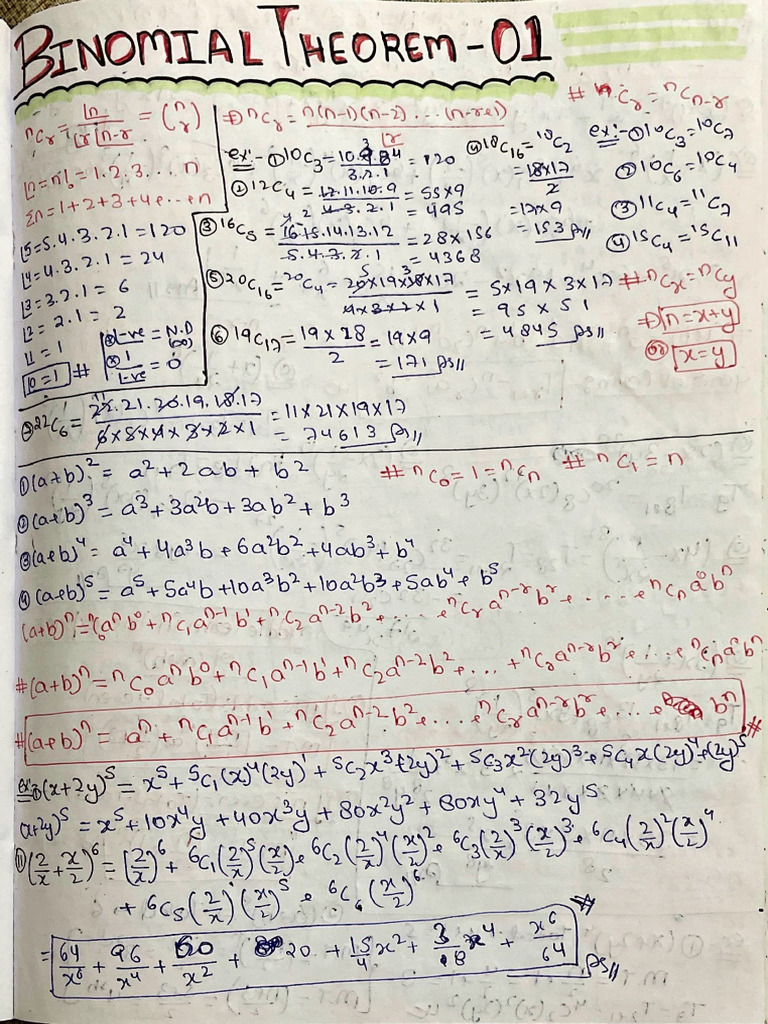 BINOMIAL THEOREM - 01
# ⁿCᵣ = ⁿCₙ₋ᵣ
ⁿCᵣ = |n / |r |n-r = (n r)
⇒ ⁿCᵣ = n(n-1)(n-2)....(n-r+1) / |r
|n = n! = 1.2.3... n
Σn = 1+2+3+4+...+n
|5 = 5.4.3.2.1 = 120
|4 = 4.3.2.1 = 24
|3 = 3.2.1 = 6
|2 = 2.1 = 2
|1 = 1
|0 = 1 #
|-ve = N.D (∞)
1 / |-ve = 0
ex:- ① ¹⁰C₃ = 10.9.8 / 3.2.1 = 120
② ¹²C₄ = 12.11.10.9 / 4.3.2.1 = 55×9
= 495
③ ¹⁶C₅ = 16.15.14.13.12 / 5.4.3.2.1 = 28×156
= 4368
④ ¹⁸C₁₆ = ¹⁸C₂
= 18×17 / 2
= 17×9
= 153 As||
⑤ ²⁰C₁₆ = ²⁰C₄ = 20×19×18×17 / 4×3×2×1 = 5×19×3×17
= 95×51
= 4845 As||
⑥ ¹⁹C₁₇ = 19×18 / 2 = 19×9
= 171 As||
ex:- ① ¹⁰C₃ = ¹⁰C₇
② ¹⁰C₆ = ¹⁰C₄
③ ¹¹C₄ = ¹¹C₇
④ ¹⁵C₄ = ¹⁵C₁₁
# ⁿCₓ = ⁿCᵧ
⇒ n = x+y
or x = y
⑦ ²²C₆ = 22.21.20.19.18.17 / 6×5×4×3×2×1 = 11×21×19×17
= 74613 As||
① (a+b)² = a² + 2ab + b²
# ⁿC₀ = 1 = ⁿCₙ # ⁿC₁ = n
② (a+b)³ = a³ + 3a²b + 3ab² + b³
③ (a+b)⁴ = a⁴ + 4a³b + 6a²b² + 4ab³ + b⁴
④ (a+b)⁵ = a⁵ + 5a⁴b + 10a³b² + 10a²b³ + 5ab⁴ + b⁵
(a+b)ⁿ = ⁿC₀aⁿb⁰ + ⁿC₁aⁿ⁻¹b¹ + ⁿC₂aⁿ⁻²b² + .... + ⁿCᵣaⁿ⁻ʳbʳ + .... + ⁿCₙa⁰bⁿ
# (a+b)ⁿ = ⁿC₀aⁿb⁰ + ⁿC₁aⁿ⁻¹b¹ + ⁿC₂aⁿ⁻²b² + ... + ⁿCᵣaⁿ⁻ʳbʳ + ... + ⁿCₙa⁰bⁿ
# (a+b)ⁿ = aⁿ + ⁿC₁aⁿ⁻¹b¹ + ⁿC₂aⁿ⁻²b² + .... + ⁿCᵣaⁿ⁻ʳbʳ + .... + bⁿ #
ex:- ① (x+2y)⁵ = x⁵ + ⁵C₁(x)⁴(2y)¹ + ⁵C₂x³(2y)² + ⁵C₃x²(2y)³ + ⁵C₄x(2y)⁴ + (2y)⁵
(x+2y)⁵ = x⁵ + 10x⁴y + 40x³y + 80x²y² + 80xy⁴ + 32y⁵
⑪ (2/x + x/2)⁶ = (2/x)⁶ + ⁶C₁(2/x)⁵(x/2) + ⁶C₂(2/x)⁴(x/2)² + ⁶C₃(2/x)³(x/2)³ + ⁶C₄(2/x)²(x/2)⁴
+ ⁶C₅(2/x)(x/2)⁵ + ⁶C₆(x/2)⁶
= 64/x⁶ + 96/x⁴ + 60/x² + 20 + 15/4 x² + 3/18 x⁴ + x⁶/64 As|| #